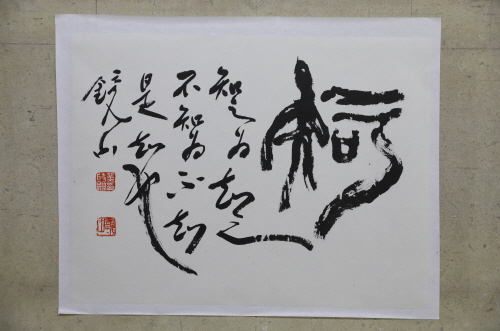 知之為知之
不知為不知
是知也
鏡山